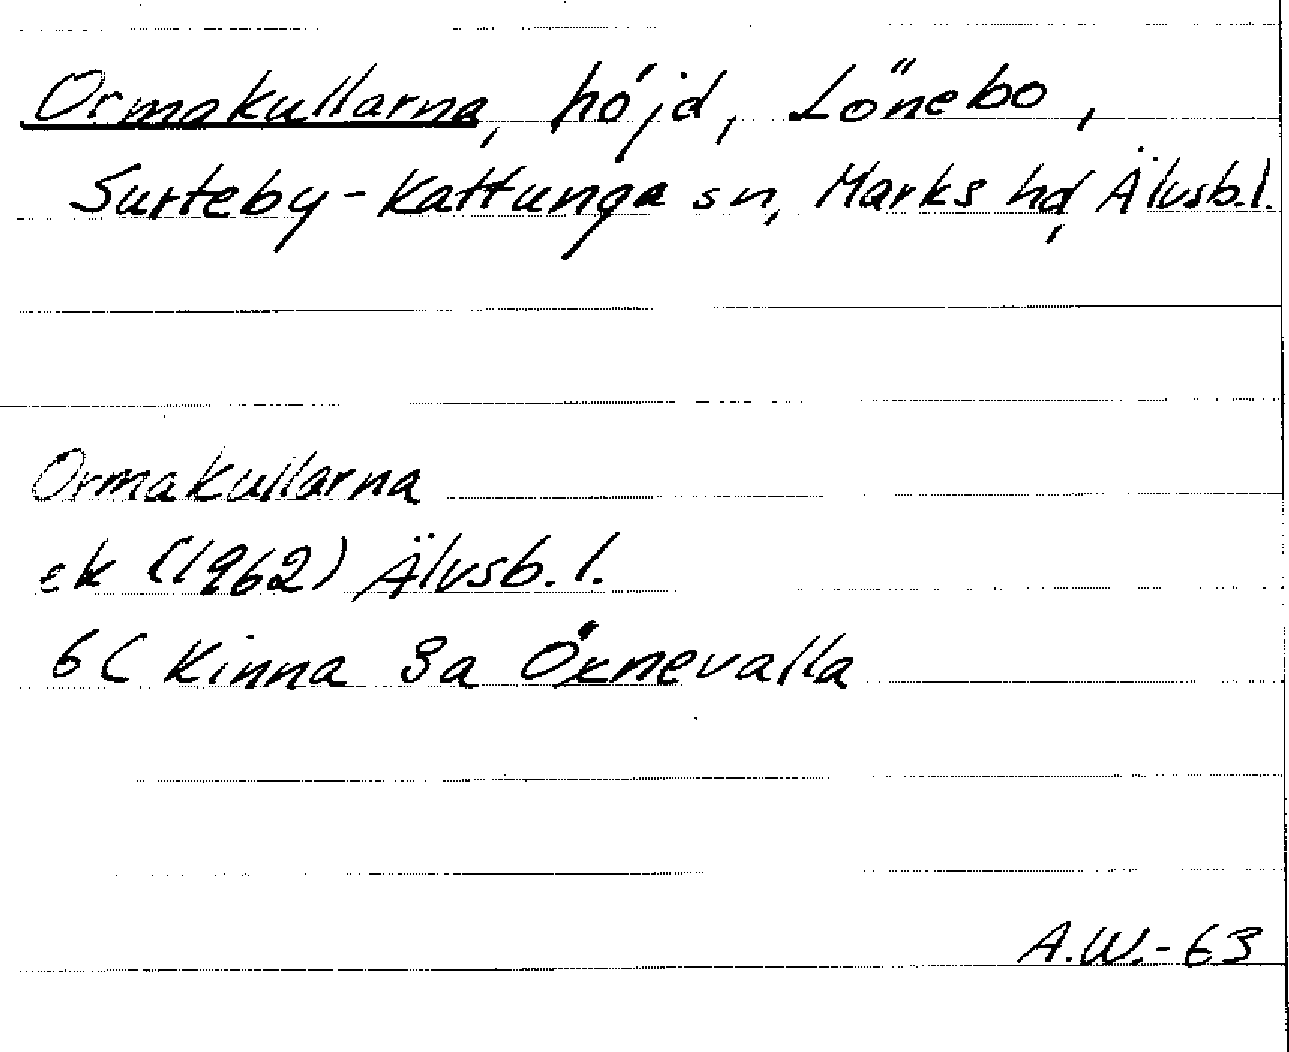 Ormakullarna, höjd, Lönebo,
Surteby-Kattunga sn, Marks hd, Älvsb.l.
Ormakullarna
ek (1962) Älvsb. l.
6C Kinna 3a Öxnevalla
A.W.-63